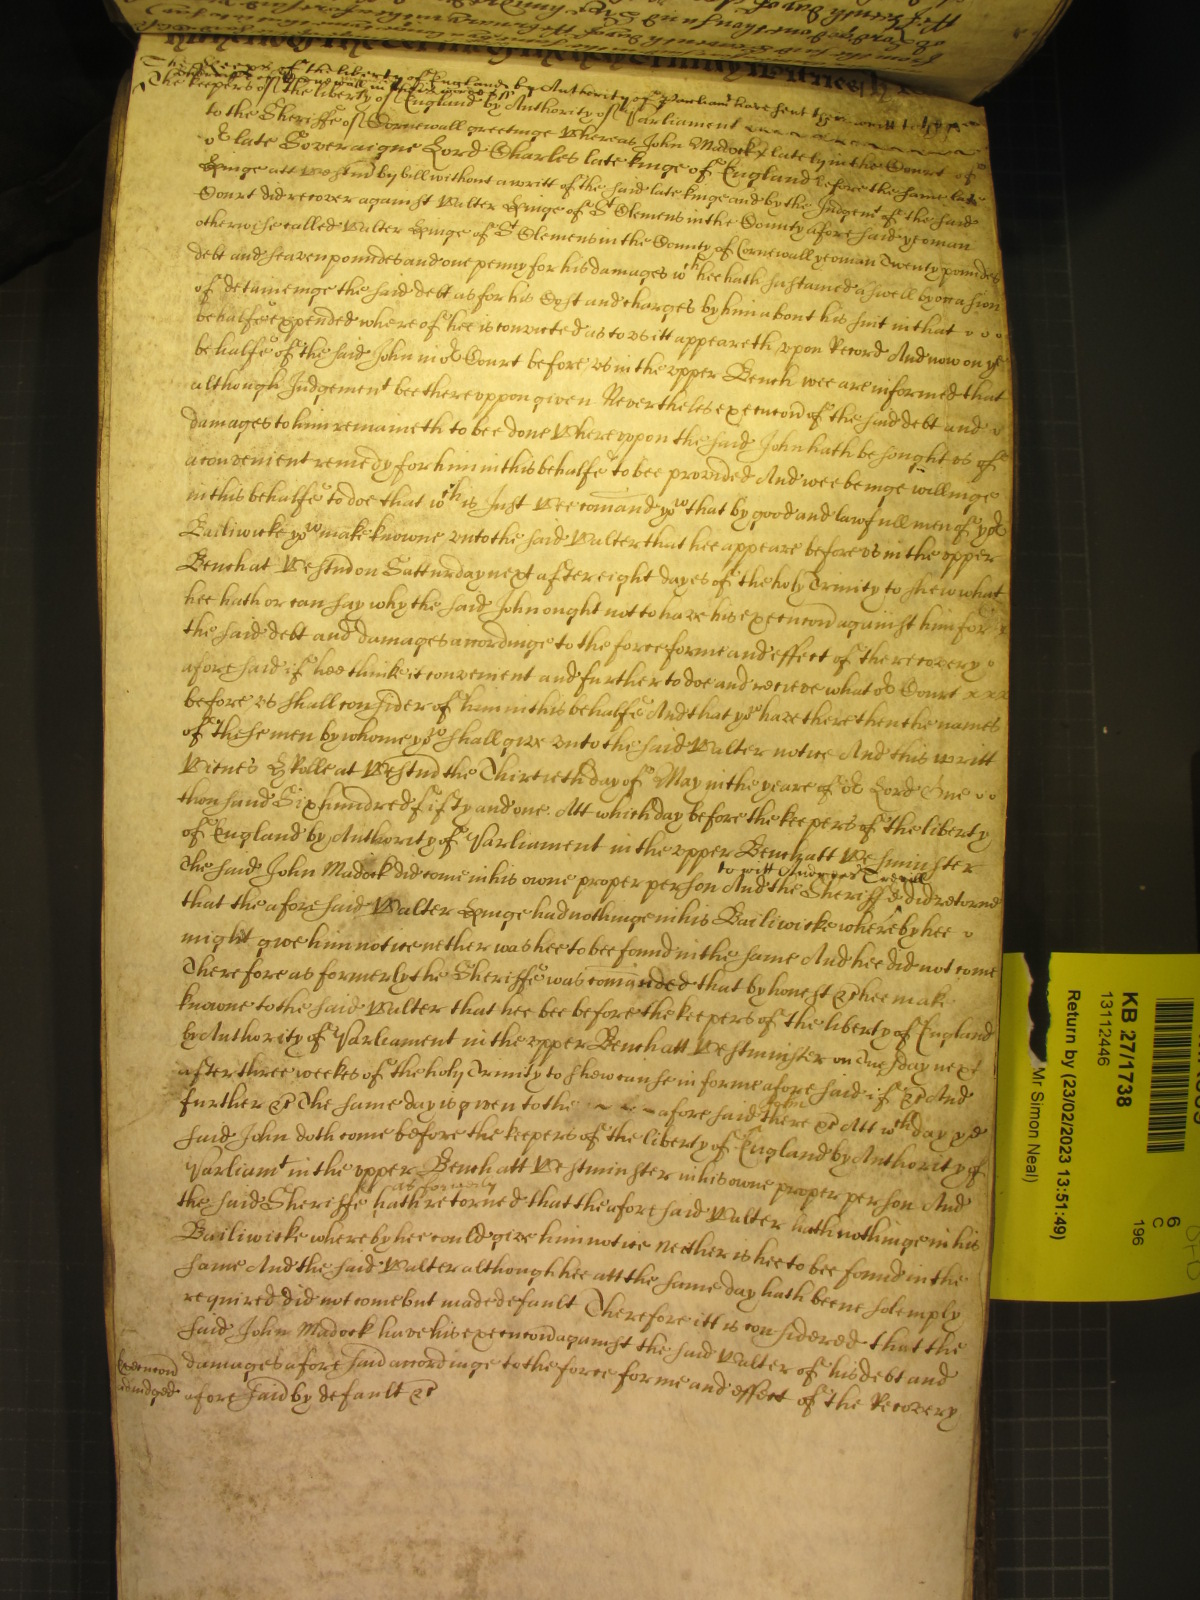 The keepers of the liberty of England by Authority of Parliam have sent their writt
The keepers of the liberty of England by Authority of Parliament
to the Sheriffe of Cornewall greetinge Whereas John Madock lately in the Court of
or late Soveraigne Lord Charles late kinge of England before the same late
kinge att Westm by bill without a writt of the said late kinge and by the Judgem of the same
Court did recover against Walter Kinge of St Clemens in the County aforesaid yeoman
otherwise called Walter Kinge of St Clemens in the County of Cornewall yeoman Twenty poundes
debt and seaven poundes and one penny for his damages wch hee hath sustained aswell by occasion
of deteineinge the said debt as for his Cost and charges by him about his suit in that
behalfe expended whereof hee is convicted as to us itt appeareth upon Record And now on ye
behalfe of the said John in or Court before us in the upper Bench wee are informed that
although Judgement bee thereuppon given Neverthelesse execucon of the said debt and
damages to him remaineth to bee done Whereuppon the said John hath besought us of
a convenient remedy for him in this behalfe to bee provided And wee beinge willinge
in this behalfe to doe that wch is Just Wee comand you that by good and lawfull men of yor
Bailiwicke you make knowne unto the said Walter that hee appeare before us in the upper
Bench at Westm on Satturday next after eight dayes of the holy Trinity to shew what
hee hath or can say why the said John ought not to have his execucon against him for
the said debt and damages accordinge to the force forme and effect of the recovery
aforesaid if hee thinke it convenient and further to doe and receive what or Court
before us shall consider of him in this behalfe And that you have there then the names
of these men by whome you shall give unto the said Walter notice And this writt
Witnes H Rolle at Westm the Thirtieth day of May in the yeare of or Lord One
thousand Six hundred fifty and one. Att which day before the keepers of the liberty
of England by Authority of Parliament in the upper Bench att Westminster
The said John Madock did come in his owne proper person And the Sheriffe to witt did retorne
that the aforesaid Walter Kinge had nothinge in his Bailiwicke whereby hee
might give him notice nether was hee to bee found in the same And hee did not come
Therefore as formerly the Sheriffe was comanded that by honest &c hee make
knowne to the said Walter that hee bee before the keepers of the liberty of England
by Authority of Parliament in the upper Bench att Westminster on Tuesday next
after three weekes of the holy Trinity to shew cause in forme aforesaid if &c And
further &c The same day is given to the aforesaid John there &c Att wch day ye
said John doth come before the keepers of the liberty of England by Authority of
Parliamt in the upper Bench att Westminster in his owne proper person And
the said Sheriffe as formerly hath retorned that the aforesaid Walter hath nothinge in his
Bailiwicke whereby hee could give him notice Neither is hee to bee found in the
same And the said Walter although hee att the same day hath beene solemply
required did not come but made default Therefore itt is considered that the
said John Madock have his execucon against the said Walter of his debt and
Execucon
adiudged
damages aforesaid accordinge to the force forme and effect of the Recovery
aforesaid by default &c
KB 27/1738
13112446
Return by (23/02/2023 13:51:49)
Mr Simon Neal)
6
C
196